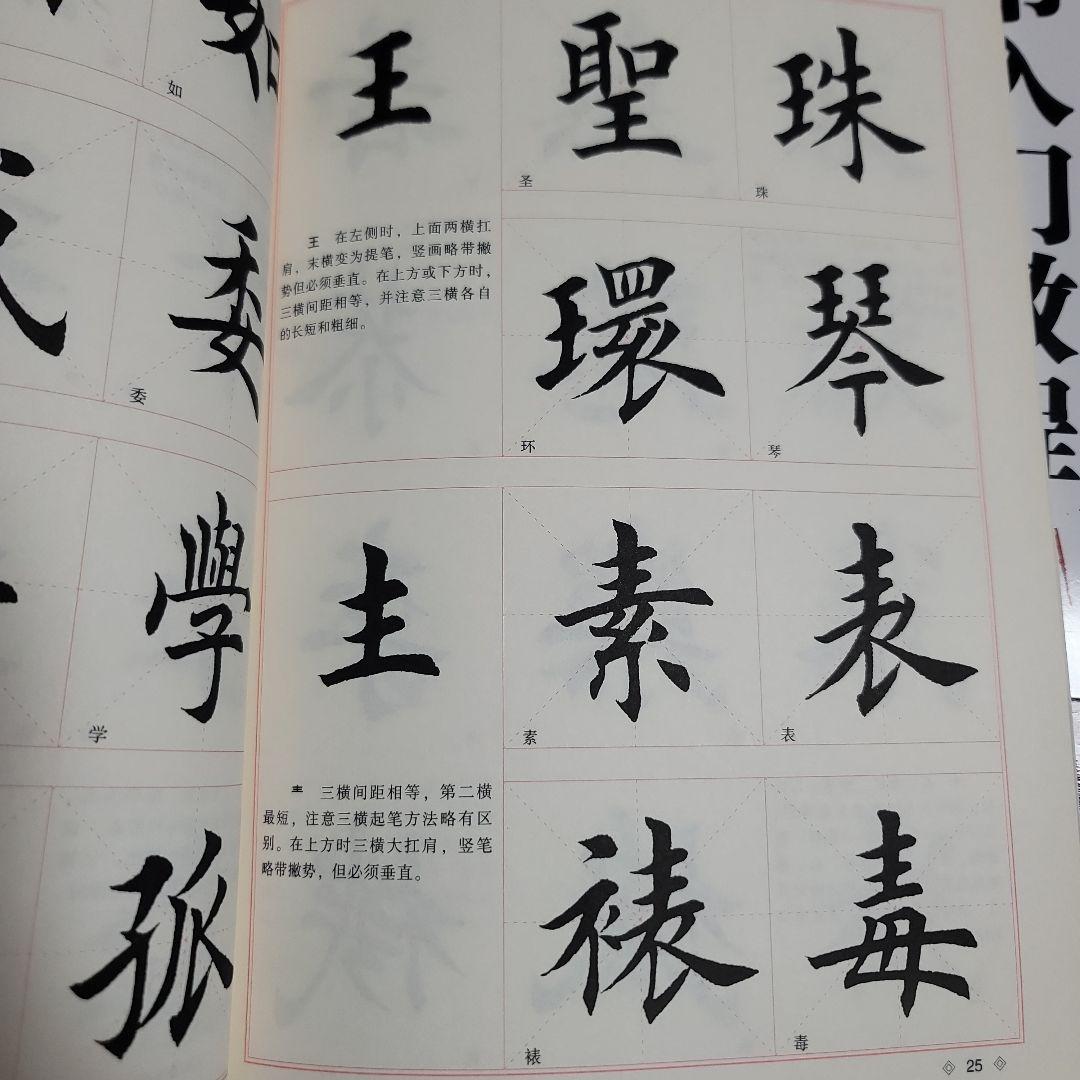 如
委
委
學
学
孤
王
聖
圣
珠
珠
王 在左侧时，上面两横扛
肩，末横变为提笔，竖画略带撇
势但必须垂直。在上方或下方时，
三横间距相等，并注意三横各自
的长短和粗细。
環
环
琴
琴
龶
素
素
表
表
龶 三横间距相等，第二横
最短，注意三横起笔方法略有区
别。在上方时三横大扛肩，竖笔
略带撇势，但必须垂直。
裱
裱
毒
毒
25
入门教程